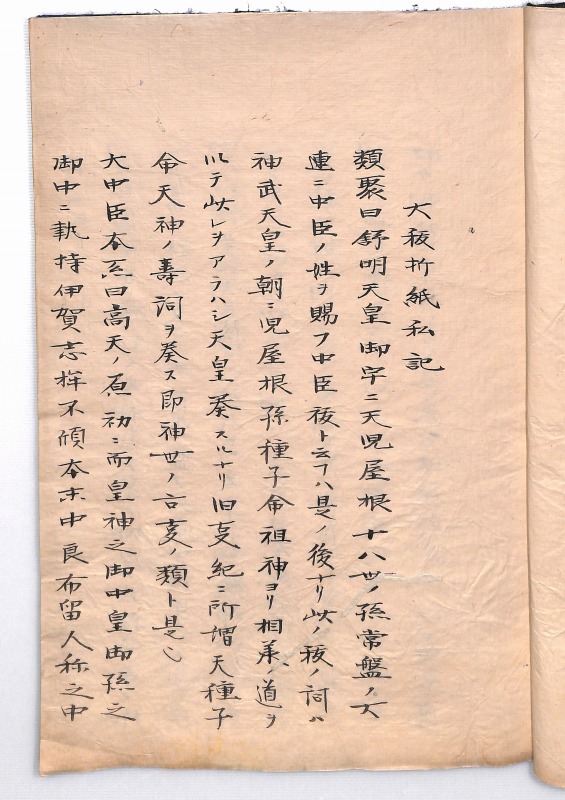 大祓折紙私記
類聚曰舒明天皇御宇ニ天児屋根十八世ノ孫常盤ノ大
連ニ中臣ノ姓ヲ賜フ中臣祓ト云フハ是ノ後ナリ此ノ祓ノ詞ハ
神武天皇ノ朝ニ児屋根孫種子命祖神ヨリ相承ノ道ヲ
以テ此レヲアラハシ天皇奏スルナリ旧事紀ニ所謂天種子
命天神ノ壽詞ヲ奏ス即神世ノ古事ノ類ト是也
大中臣本系曰高天ノ原初ニ而皇神之御中皇御孫之
御中ニ執持伊賀志桙不傾本末中良布留人称之中